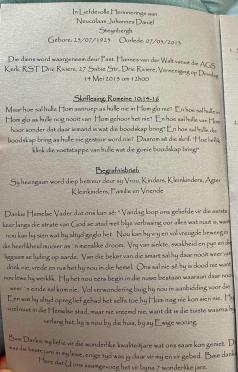 In Liefdevolle Herinneringe aan
Nicolaas Johannes Daniel
Steynbergh
Gebore: 25/07/1925 Oorlede: 07/05/2013
Die diens word waargeneem deur Past. Hannes van der Walt vanuit die AGS
Kerk, RST Drie Riviere, 27 Salix Str., Drie Riviere, Vereeniging op Dinsdag,
14 Mei 2013 om 12h00
Skriflesing: Romeine 10:14-16
Maar hoe sal hulle Hom aanroep as hulle nie in Hom glo nie? En hoe sal hulle in
Hom glo as hulle nog nooit van Hom gehoor het nie? En hoe sal hulle van Hom
hoor sonder dat daar iemand is wat die boodskap bring? En hoe sal hulle die
boodskap bring as hulle nie gestuur word nie? Daarom sê die skrif: "Hoe lieflik
klink die voetstappe van hulle wat die goeie boodskap bring!"
Begrafnisbrief:
Sy heengaan word diep betreur deur sy Vrou, Kinders, Kleinkinders, Agter
Kleinkinders, Familie en Vriende
Dankie Hemelse Vader dat ons kan sê: "Vandag loop ons geliefde vir die eerste
keer langs die strate van God se stad
nou kan hy sien wat hy altyd geglo het. Nou kan hy vry en vol vreugde beweeg in
die heerlikheid mooier as 'n
Vry van siekte, swakheid en pyn en die
liggaam se lyding op aarde. Van die beker van die smart sal hy daar nooit weer
drink nie, vrede en rus het hy nou in die hemel. Ons sal nie sê hy is dood nie want
nou lewe hy werklik. Hy het nou eers begin in die nuwe bestaan waaraan daar nooit
weer 'n einde sal kom nie. Vol verwondering bring hy nou in aanbidding voor die
Een wat hy altyd opreg lief gehad het selfs toe hy Hom nog nie kon sien nie. Hy
tree nou in die Hemelse stad, maar nie vreemd nie, want dit is die tuiste waarna hy
verlang het, hy is nou by die huis, by sy Ewige woning.
Baie Dankie my liefie vir die wonderlike kwaliteit jare wat ons saam kon geniet.
was die beste jare in my lewe, enige tyd was jy daar vir my en vir gebed. Baie dankie
Here dat U ons saamgevoeg het vir byna 7 wonderlike jare.